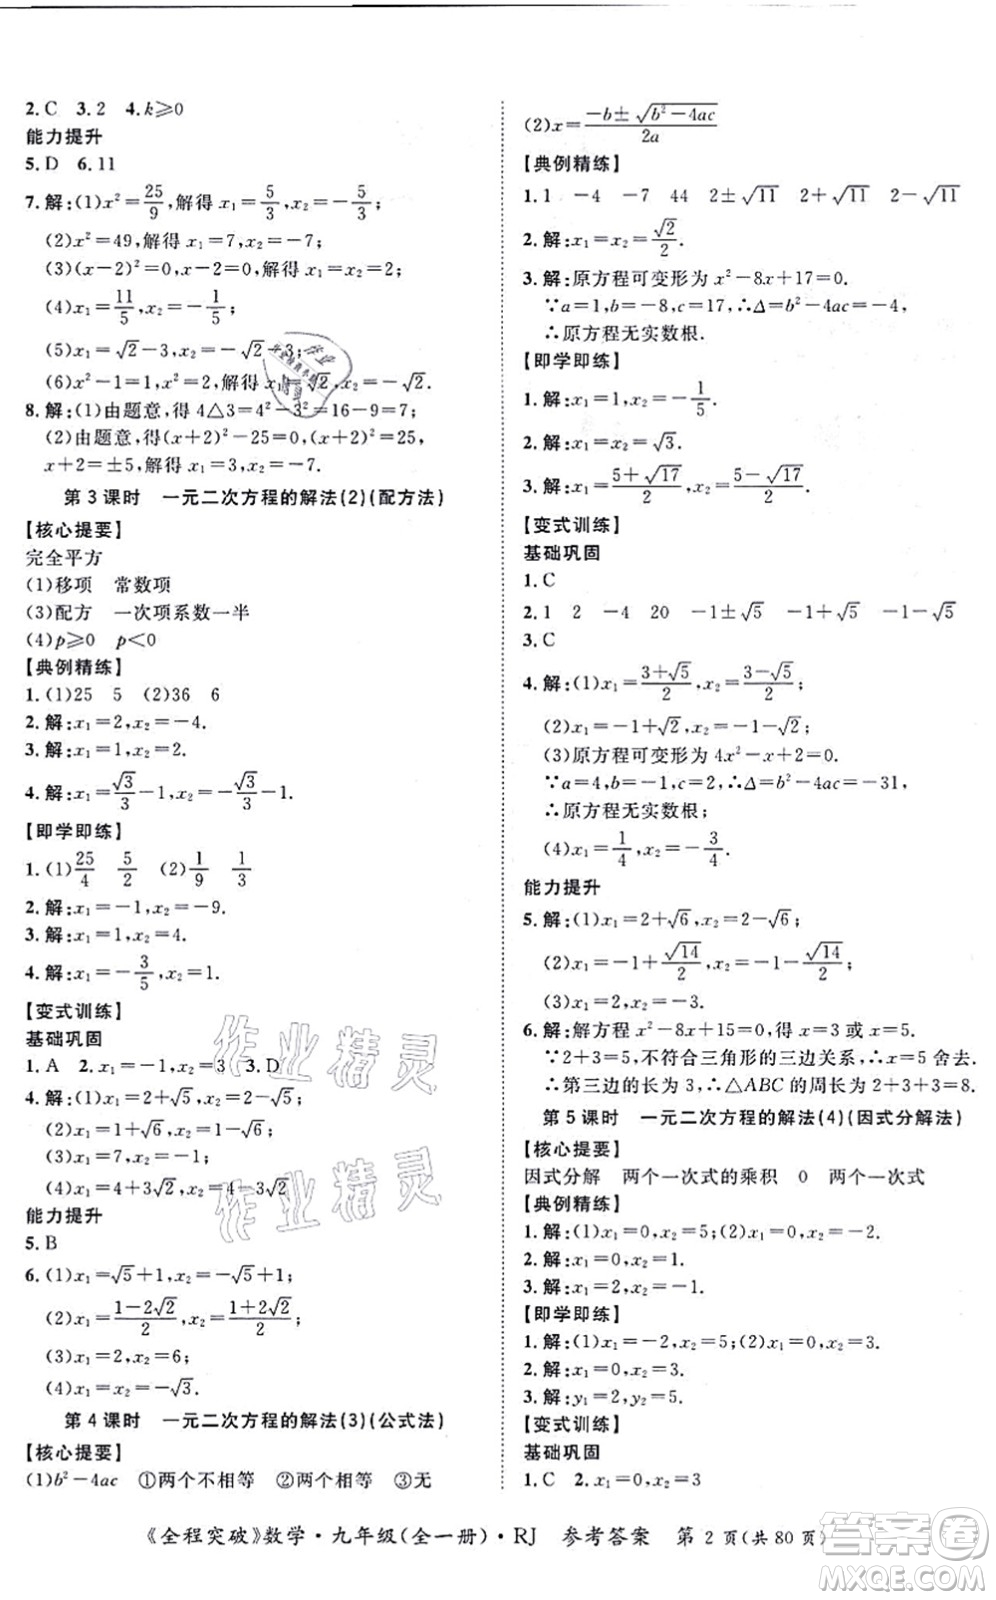 2. C  3. 2  4. k≥0
能力提升
5. D  6. 11
7. 解:(1)x²=25/9,解得 x₁=5/3,x₂=-5/3;
(2)x²=49,解得 x₁=7,x₂=-7;
(3)(x-2)²=0,x-2=0,解得 x₁=x₂=2;
(4)x₁=11/5,x₂=-1/5;
(5)x₁=√2-3,x₂=-√2-3;
(6)x²-1=1,x²=2,解得 x₁=√2,x₂=-√2.
8. 解:(1)由题意,得 4△3=4²-3²=16-9=7;
(2)由题意,得(x+2)²-25=0,(x+2)²=25,
x+2=±5,解得 x₁=3,x₂=-7.
第 3 课时  一元二次方程的解法(2)(配方法)
【核心提要】
完全平方
(1)移项  常数项
(3)配方  一次项系数一半
(4)p≥0  p<0
【典例精练】
1. (1)25  5  (2)36  6
2. 解:x₁=2,x₂=-4.
3. 解:x₁=1,x₂=2.
4. 解:x₁=√3/3-1,x₂=-√3/3-1.
【即学即练】
1. (1)25/4  5/2  (2)1/9  1/3
2. 解:x₁=-1,x₂=-9.
3. 解:x₁=1,x₂=4.
4. 解:x₁=-3/5,x₂=1.
【变式训练】
基础巩固
1. A  2. x₁=-1,x₂=3  3. D
4. 解:(1)x₁=2+√5,x₂=2-√5;
(2)x₁=1+√6,x₂=1-√6;
(3)x₁=-1,x₂=4;
(4)x₁=4+3√2,x₂=4-3√2.
能力提升
5. B
6. (1)x₁=√5+1,x₂=-√5+1;
(2)x₁=(1-2√2)/2,x₂=(1+2√2)/2;
(3)x₁=2,x₂=6;
(4)x₁=x₂=-√3.
第 4 课时  一元二次方程的解法(3)(公式法)
【核心提要】
(1)b²-4ac  ①两个不相等  ②两个相等  ③无
(2)x=(-b±√(b²-4ac))/2a
【典例精练】
1. 1  -4  -7  44  2±√11  2+√11  2-√11
2. 解:x₁=x₂=√2/2.
3. 解:原方程可变形为 x²-8x+17=0.
∵a=1,b=-8,c=17,∴Δ=b²-4ac=-4,
∴原方程无实数根.
【即学即练】
1. 解:x₁=1,x₂=-1/5.
2. 解:x₁=x₂=√3.
3. 解:x₁=(5+√17)/2,x₂=(5-√17)/2.
【变式训练】
基础巩固
1. C
2. 1  2  -4  20  -1±√5  -1+√5  -1-√5
3. C
4. 解:(1)x₁=(3+√5)/2,x₂=(3-√5)/2;
(2)x₁=-1+√2,x₂=-1-√2;
(3)原方程可变形为 4x²-x+2=0.
∵a=4,b=-1,c=2,∴Δ=b²-4ac=-31,
∴原方程无实数根;
(4)x₁=1/4,x₂=-3/4.
能力提升
5. 解:(1)x₁=2+√6,x₂=2-√6;
(2)x₁=-1+√14/2,x₂=-1-√14/2;
(3)x₁=2,x₂=-3.
6. 解:解方程 x²-8x+15=0,得 x=3 或 x=5.
∵2+3=5,不符合三角形的三边关系,∴x=5 舍去.
∴第三边的长为 3,∴△ABC 的周长为 2+3+3=8.
第 5 课时  一元二次方程的解法(4)(因式分解法)
【核心提要】
因式分解  两个一次式的乘积  0  两个一次式
【典例精练】
1. 解:(1)x₁=0,x₂=5;(2)x₁=0,x₂=-2.
2. 解:x₁=0,x₂=1.
3. 解:x₁=1,x₂=-1.
【即学即练】
1. 解:(1)x₁=-2,x₂=5;(2)x₁=0,x₂=3.
2. 解:x₁=0,x₂=3.
3. 解:y₁=2,y₂=5.
【变式训练】
基础巩固
1. C  2. x₁=0,x₂=3
《全程突破》数学·九年级(全一册)·RJ  参考答案  第 2 页(共 80 页)
作业精灵
作业精灵
答案圈
MXQE.COM